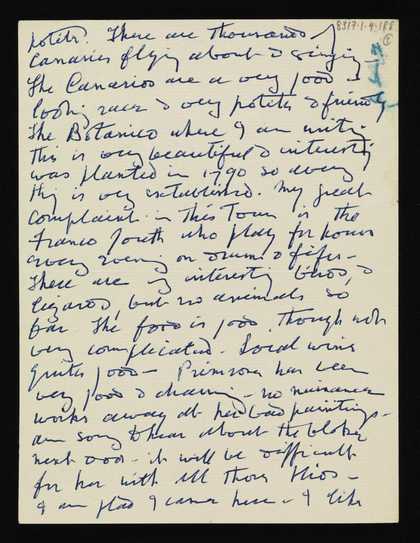 8317.1.4.188
1
hotels. There are thousands of
Canaries flying about & singing -
The Canarios are a very good
looking race & very polite & friendly
The Botanico where I am writing
this is very beautiful & interesting
was planted in 1790 so every
thing is very established. My great
complaint in this Town is the
Franco Youth who play for hours
every evening on drums & fifes -
There are interesting birds, &
lizards, but no animals so
far. The food is good, though not
very complicated. Local wine
quite good - Primrose has been
very good & charming - no nuisance
works away at her bad paintings -
am sorry to hear about the bloke
next door - it will be difficult
for her with all those
I am glad I came here - I like